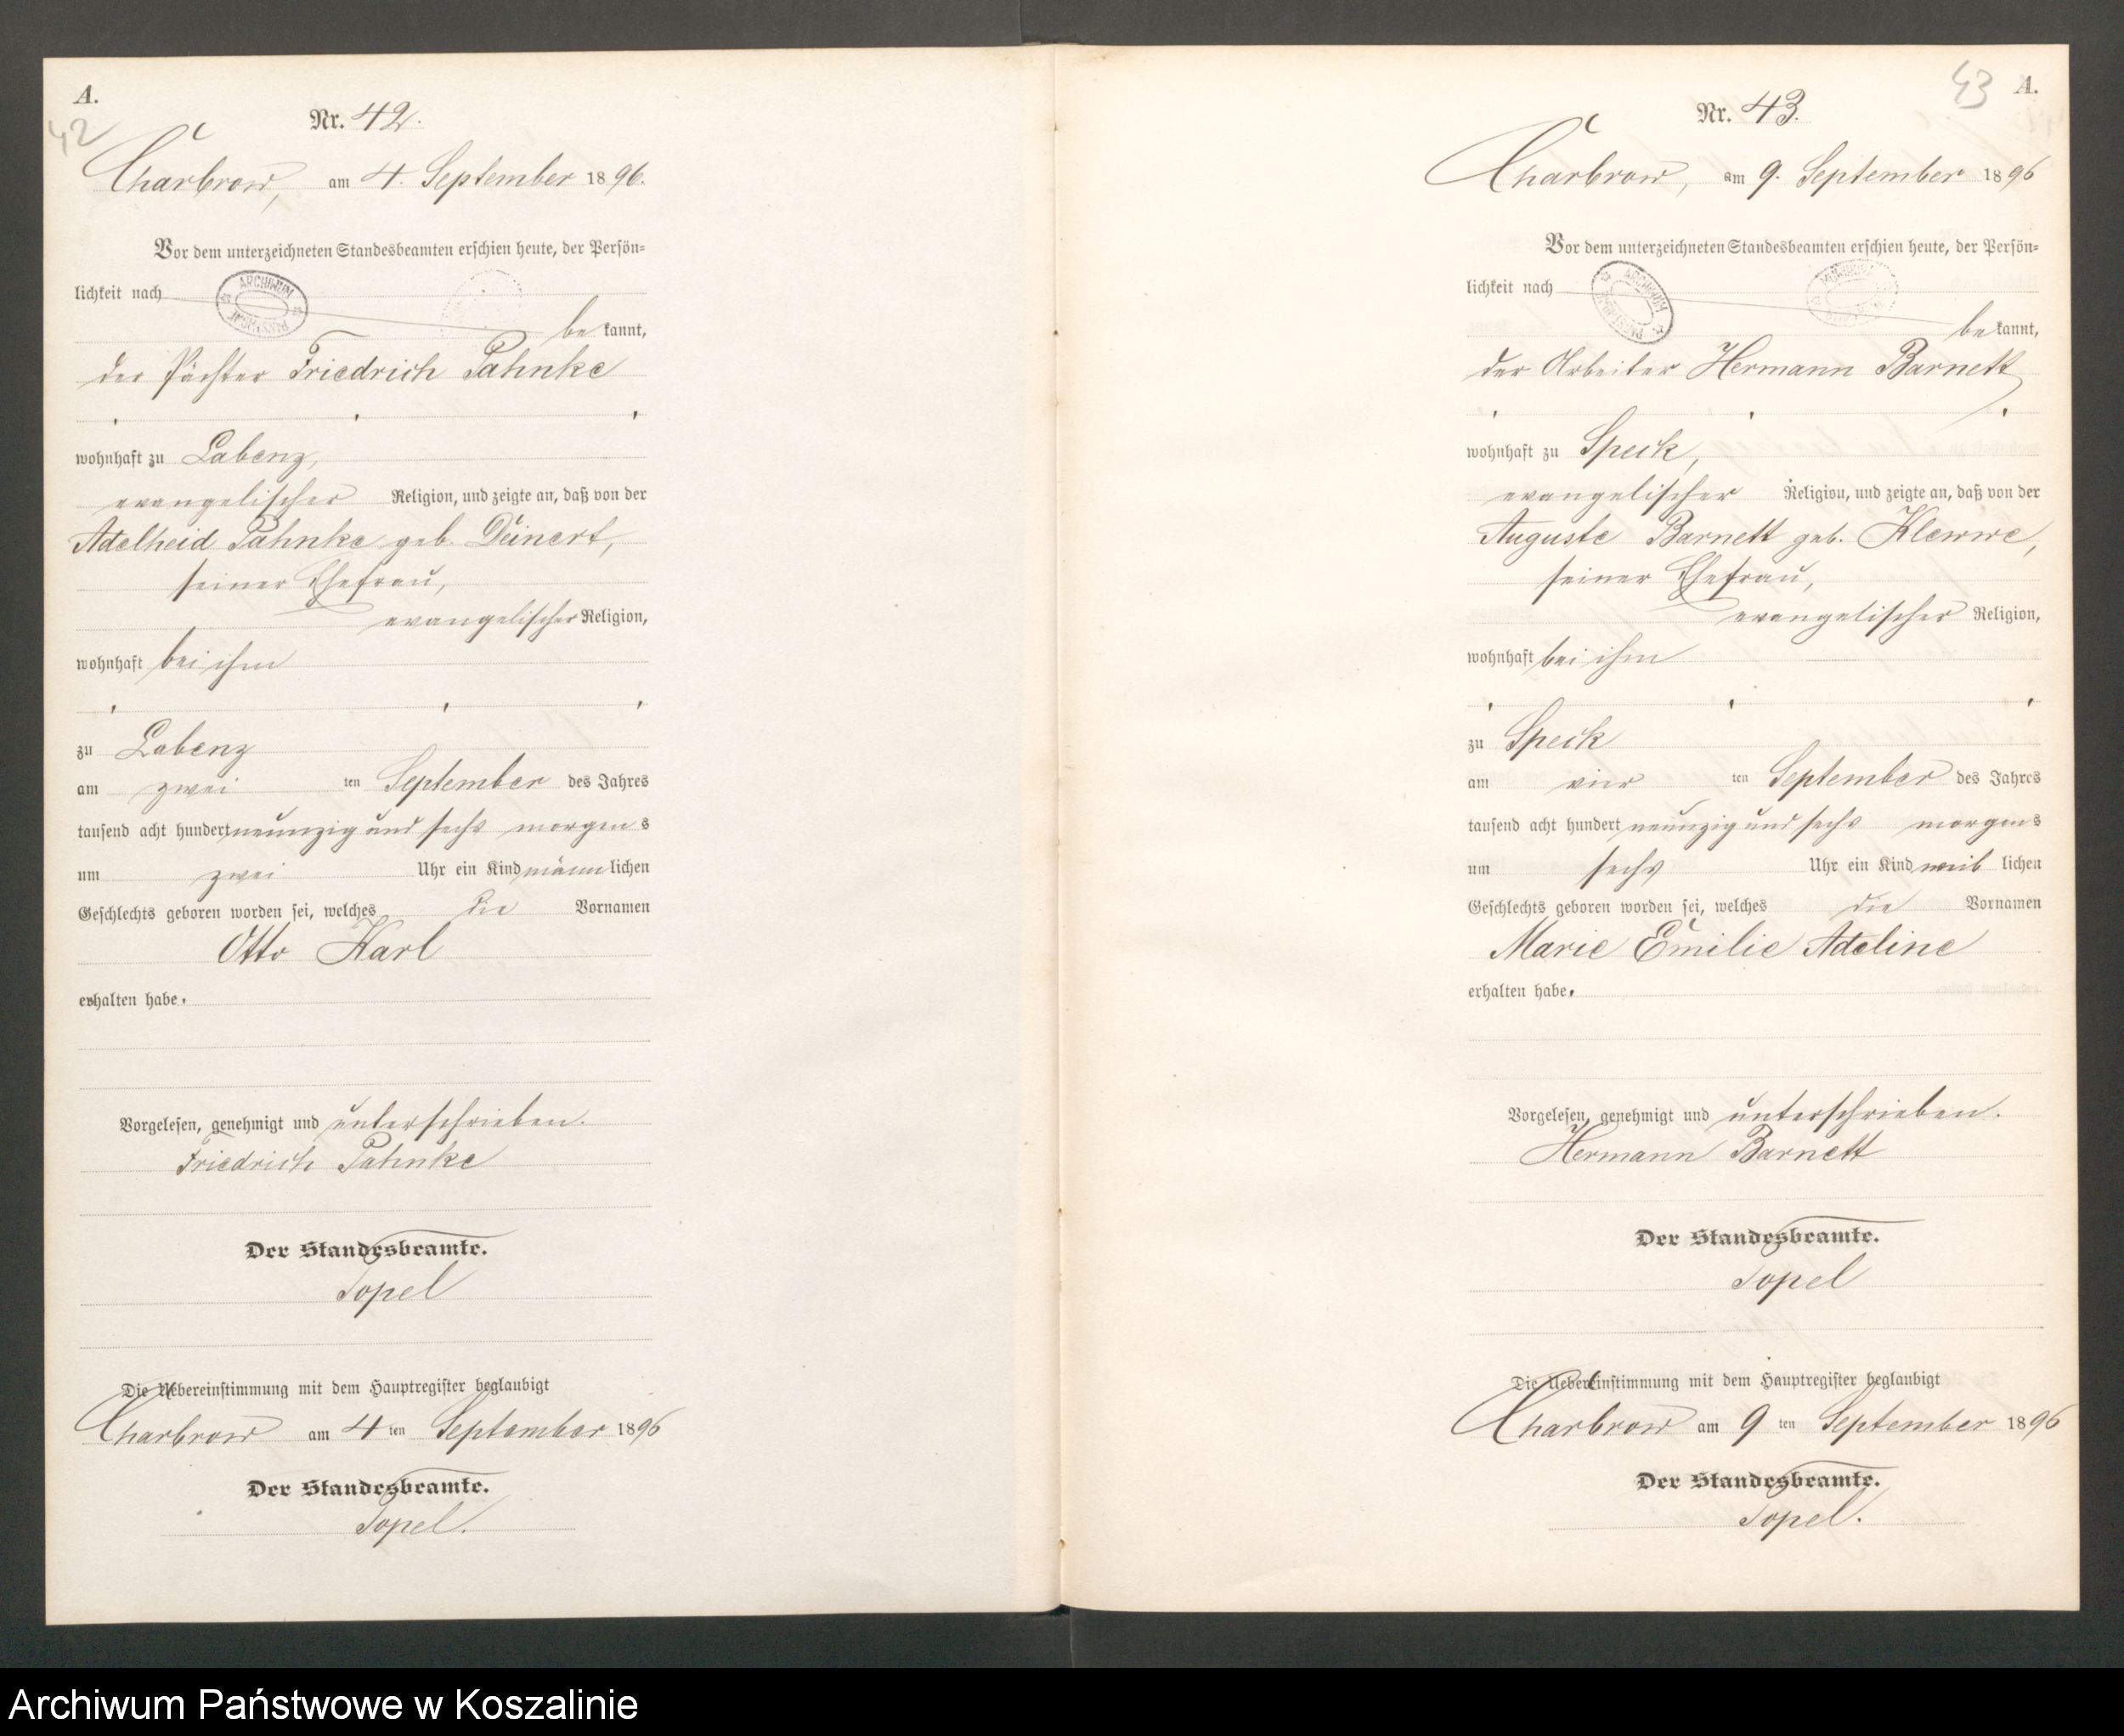 A.
42
Nr. 42.
Charbrow, am 4. September 1896.
Vor dem unterzeichneten Standesbeamten erschien heute, der Persön=
lichkeit nach
ARCHIWUM
be kannt,
der Pächter Friedrich Pahnke
wohnhaft zu Labenz,
evangelischer Religion, und zeigte an, daß von der
Adelheid Pahnke geb. Deinert,
seiner Ehefrau,
evangelischer Religion,
wohnhaft bei ihm
zu Labenz
am zwei ten September des Jahres
tausend acht hundert neunzig und sechs morgens
um zwei Uhr ein Kind männlichen
Geschlechts geboren worden sei, welches die Vornamen
Otto Karl
erhalten habe.
Vorgelesen, genehmigt und unterschrieben.
Friedrich Pahnke
Der Standesbeamte.
Topel
Die Uebereinstimmung mit dem Hauptregister beglaubigt
Charbrow am 4 ten September 1896
Der Standesbeamte.
Topel.
43
A.
Nr. 43.
Charbrow, am 9. September 1896
Vor dem unterzeichneten Standesbeamten erschien heute, der Persön=
lichkeit nach
ARCHIWUM
be kannt,
der Arbeiter Hermann Barnett
wohnhaft zu Speck,
evangelischer Religion, und zeigte an, daß von der
Auguste Barnett geb. Klewwe,
seiner Ehefrau,
evangelischer Religion,
wohnhaft bei ihm
zu Speck
am vier ten September des Jahres
tausend acht hundert neunzig und sechs morgens
um sechs Uhr ein Kind weib lichen
Geschlechts geboren worden sei, welches die Vornamen
Marie Emilie Adeline
erhalten habe.
Vorgelesen, genehmigt und unterschrieben.
Hermann Barnett
Der Standesbeamte.
Topel
Die Uebereinstimmung mit dem Hauptregister beglaubigt
Charbrow am 9 ten September 1896
Der Standesbeamte.
Topel.
Archiwum Państwowe w Koszalinie